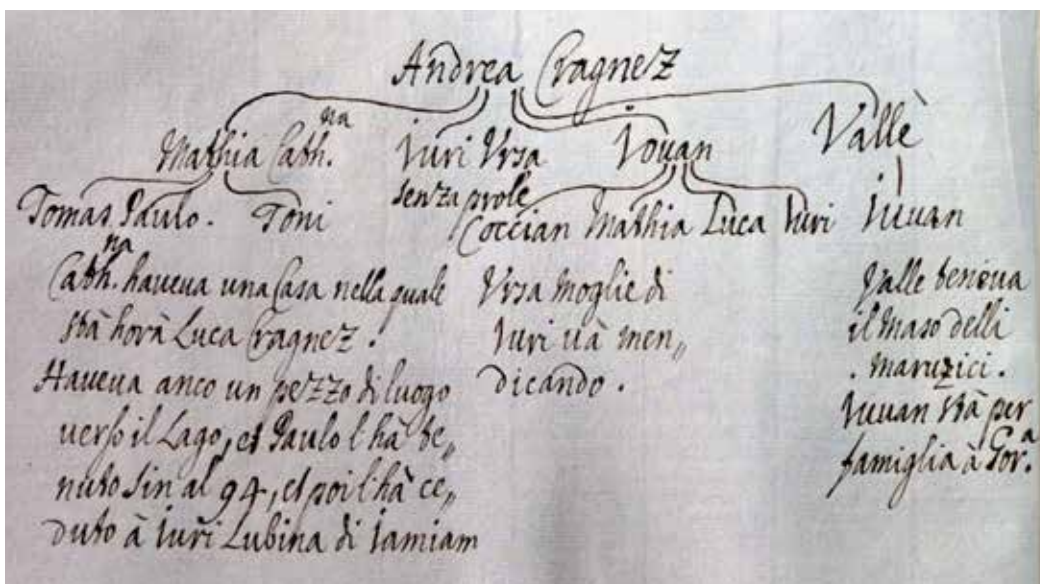 Andrea Cragnez
Mathia Cath.na Iuri Vrsa Iouan Vallè
senza prole
Tomas Paulo. Toni Coccian Mathia Luca Iuri Iuuan
Cath.na haueua una Casa nella quale
stà horà Luca Cragnez.
Haueua anco un pezzo di luogo
uerso il Lago, et Paulo l'hà te„
nuto sin al 94, et poi l'hà ce„
duto à Iuri Lubina di Iamiam
Vrsa moglie di
Iuri uà men„
dicando.
Valle teneua
il maso delli
maruzici.
Iuuan stà per
famiglia à Gor.a